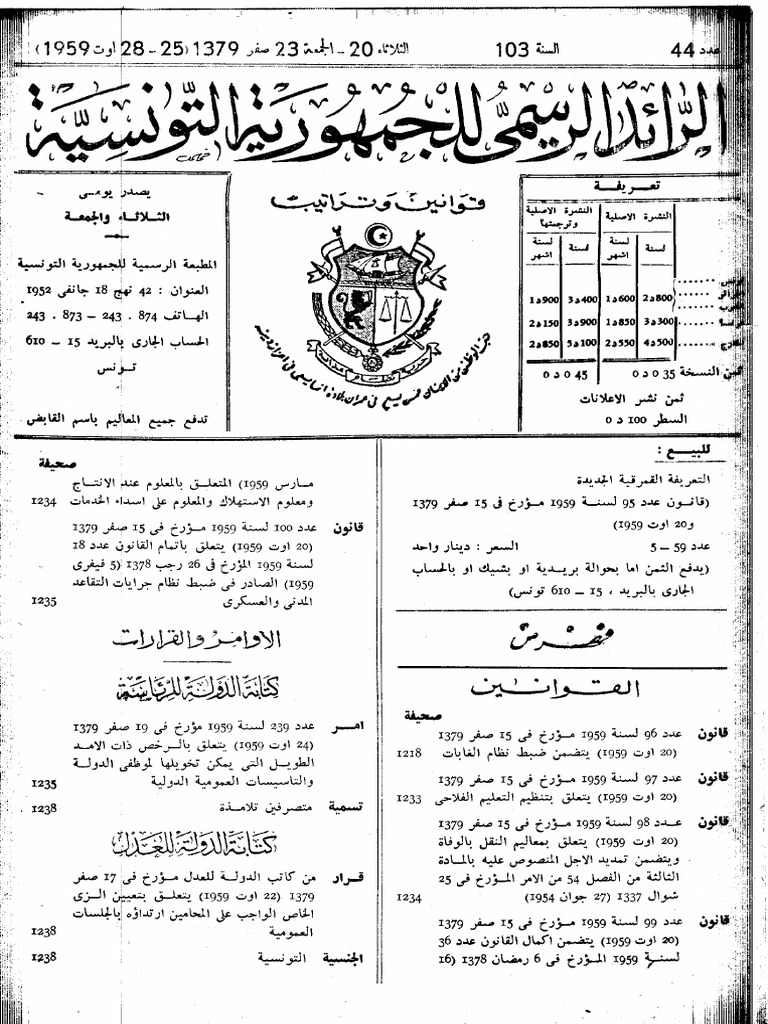 عدد 44 السنة 103 الثلاثاء 20 – الجمعة 23 صفر 1379 (25 – 28 اوت 1959)
الرائد الرسمي للجمهورية التونسية
تعريفة
النشرة الاصلية
النشرة الاصلية وترجمتها
لسنة
لسنة اشهر
لسنة
لسنة اشهر
800 د 2 600 د 1 400 د 3 900 د 1
300 د 3 850 د 1 900 د 3 150 د 2
500 د 4 550 د 2 100 د 5 850 د 2
ثمن النسخة 35 0 د 0 45 0 د 0
ثمن نشر الاعلانات
السطر 100 د 0
قوانين وتراتيب
حرية نظام عدالة
يصدر يومى
الثلاثاء والجمعة
المطبعة الرسمية للجمهورية التونسية
العنوان : 42 نهج 18 جانفى 1952
الهاتف 874 . 243 – 873 . 243
الحساب الجارى بالبريد 15 – 610
تونس
تدفع جميع المعاليم باسم القابض
للبيع :
التعريفة القمرقية الجديدة
(قانون عدد 95 لسنة 1959 مؤرخ فى 15 صفر 1379
و20 اوت 1959)
عدد 59 – 5 السعر : دينار واحد
(يدفع الثمن اما بحوالة بريدية او بشيك او بالحساب
الجارى بالبريد ، 15 – 610 تونس)
فهرس
القوانين
صحيفة
قانون عدد 96 لسنة 1959 مؤرخ فى 15 صفر 1379
(20 اوت 1959) يتضمن ضبط نظام الغابات 1218
قانون عدد 97 لسنة 1959 مؤرخ فى 15 صفر 1379
(20 اوت 1959) يتعلق بتنظيم التعليم الفلاحى 1233
قانون عدد 98 لسنة 1959 مؤرخ فى 15 صفر 1379
(20 اوت 1959) يتعلق بمعاليم النقل بالوفاة
ويتضمن تمديد الاجل المنصوص عليه بالمادة
الثالثة من الفصل 54 من الامر المؤرخ فى 25
شوال 1337 (27 جوان 1954) 1234
قانون عدد 99 لسنة 1959 مؤرخ فى 15 صفر 1379
(20 اوت 1959) يتضمن اكمال القانون عدد 36
لسنة 1959 المؤرخ فى 6 رمضان 1378 (16
صحيفة
مارس 1959) المتعلق بالمعلوم عند الانتاج
ومعلوم الاستهلاك والمعلوم على اسداء الخدمات 1234
قانون عدد 100 لسنة 1959 مؤرخ فى 15 صفر 1379
(20 اوت 1959) يتعلق باتمام القانون عدد 18
لسنة 1959 المؤرخ فى 26 رجب 1378 (5 فيفرى
1959) الصادر فى ضبط نظام جرايات التقاعد
المدنى والعسكرى 1235
الاوامر والقرارات
كتابة الدولة للرئاسة
امر عدد 239 لسنة 1959 مؤرخ فى 19 صفر 1379
(24 اوت 1959) يتعلق بالرخص ذات الامد
الطويل التى يمكن تخويلها لموظفى الدولة
والتاسيسات العمومية الدولية 1235
تسمية متصرفين تلامذة 1238
كتابة الدولة للعدل
قرار من كاتب الدولة للعدل مؤرخ فى 17 صفر
1379 (22 اوت 1959) يتعلق بتعيين الزى
الخاص الواجب على المحامين ارتداؤه بالجلسات
العمومية 1238
الجنسية التونسية 1238